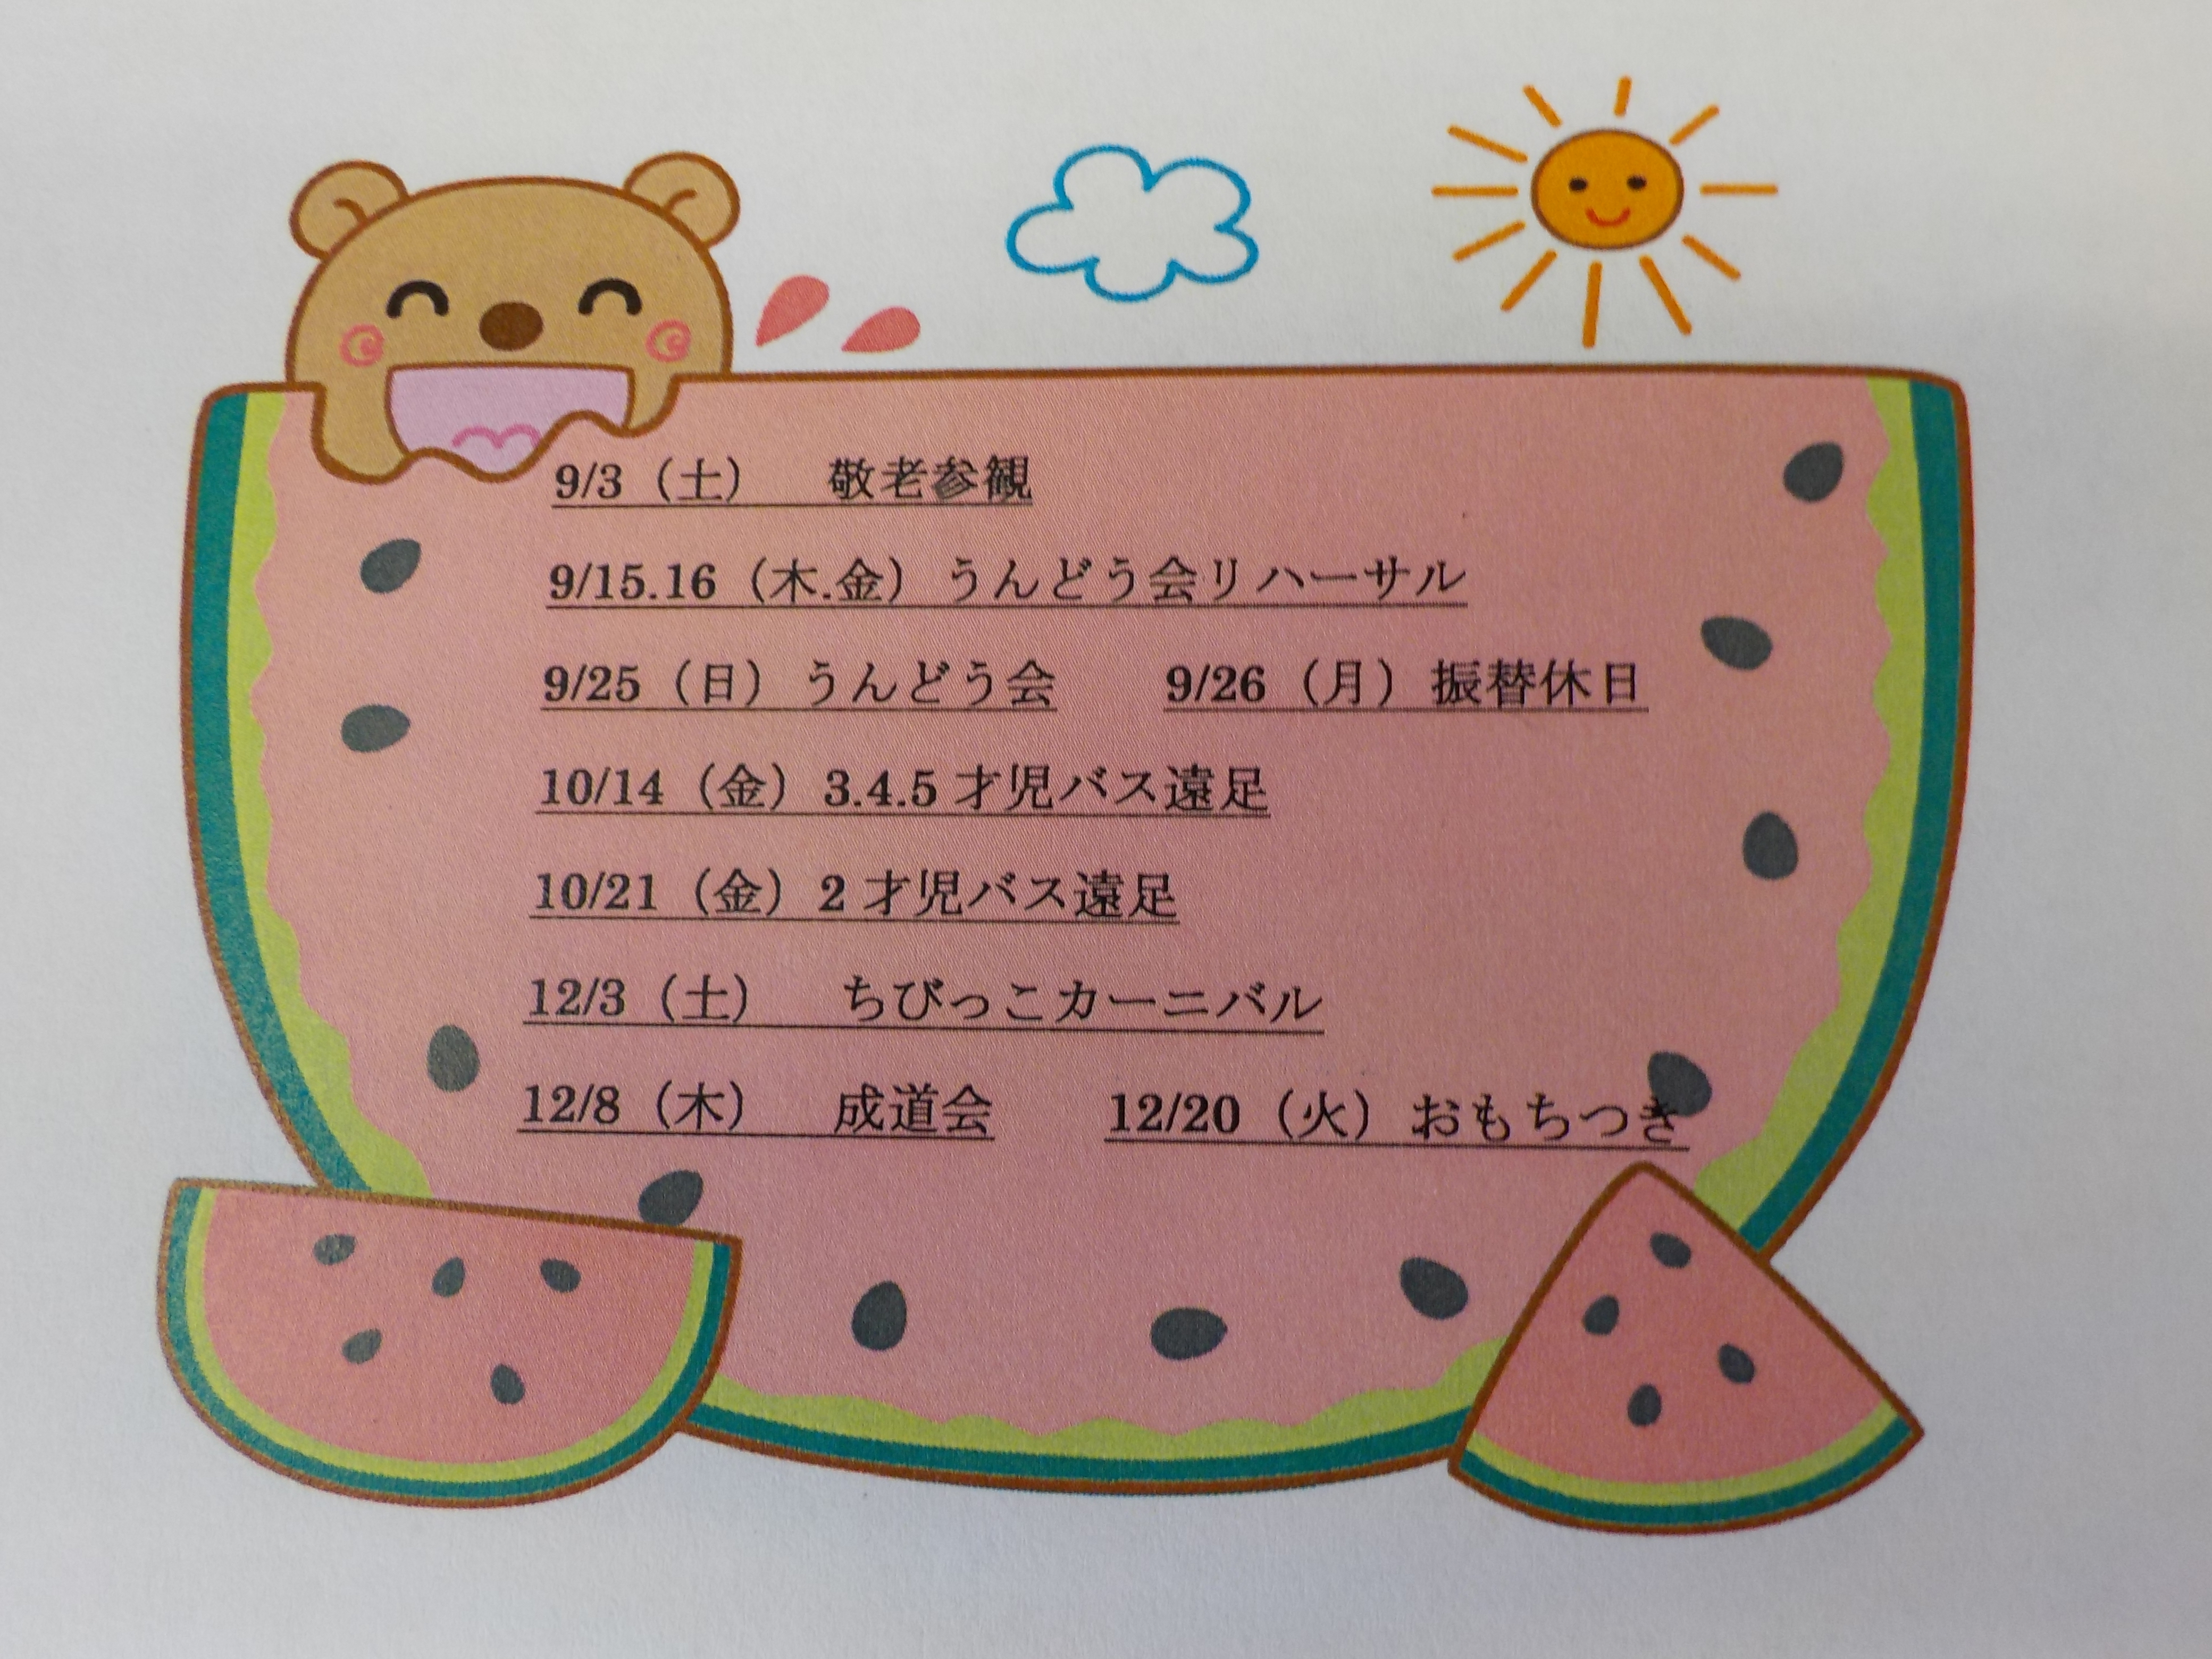 9/3（土）　敬老参観
9/15.16（木.金）うんどう会リハーサル
9/25（日）うんどう会　　9/26（月）振替休日
10/14（金）3.4.5才児バス遠足
10/21（金）2才児バス遠足
12/3（土）　ちびっこカーニバル
12/8（木）　成道会　　12/20（火）おもちつき